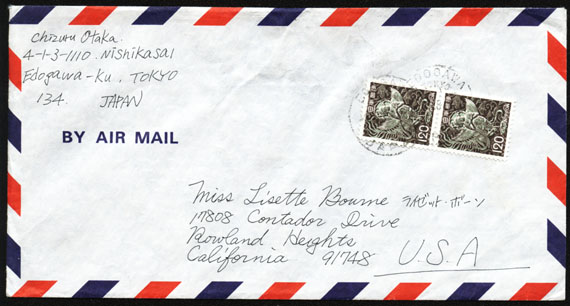 Chizuru Otaka
4-1-3-1110 Nishikasai
Edogawa-Ku, TOKYO
134. JAPAN
BY AIR MAIL
120
120
Miss Lisette Bourne
17808 Contador Drive
Rowland Heights
California 91748 U.S.A